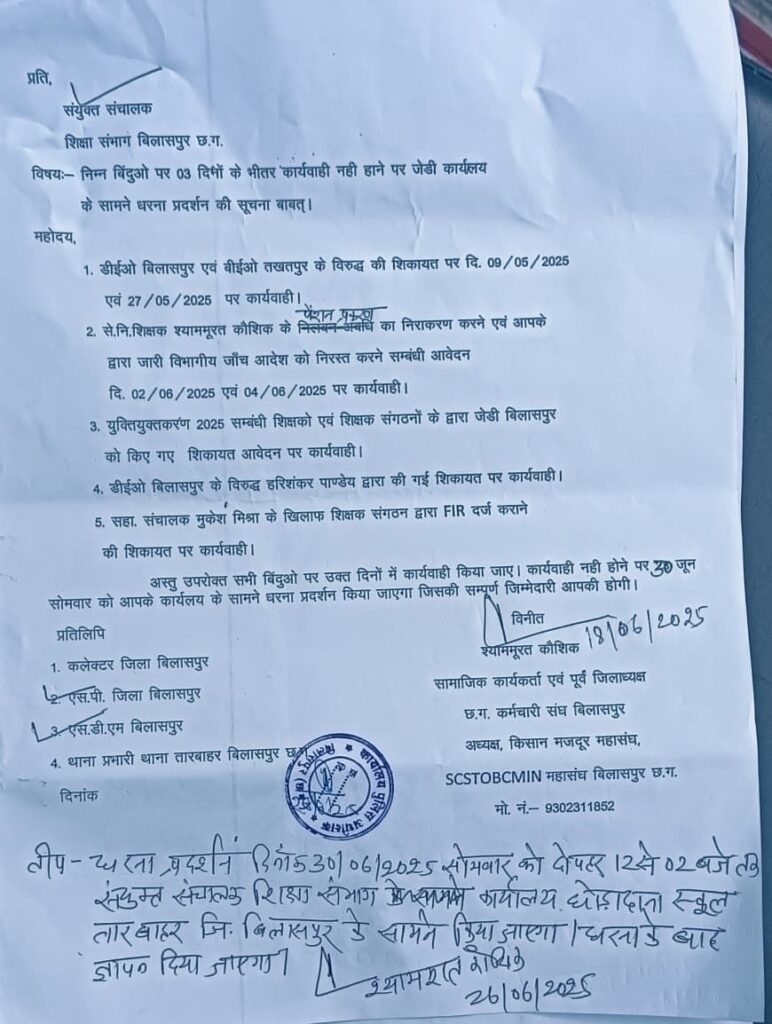 प्रति,
संयुक्त संचालक
शिक्षा संभाग बिलासपुर छ.ग.
विषयः– निम्न बिंदुओ पर 03 दिनों के भीतर कार्यवाही नही हाने पर जेडी कार्यलय
के सामने धरना प्रदर्शन की सूचना बाबत्।
महोदय,
1. डीईओ बिलासपुर एवं बीईओ तखतपुर के विरुद्ध की शिकायत पर दि. 09/05/2025
एवं 27/05/2025 पर कार्यवाही।
पेंशन प्रकरण
2. से.नि.शिक्षक श्याममूरत कौशिक के निलंबन अवधि का निराकरण करने एवं आपके
द्वारा जारी विभागीय जॉच आदेश को निरस्त करने सम्बंधी आवेदन
दि. 02/06/2025 एवं 04/06/2025 पर कार्यवाही।
3. युक्तियुक्तकरंण 2025 सम्बंधी शिक्षको एवं शिक्षक संगठनों के द्वारा जेडी बिलासपुर
को किए गए शिकायत आवेदन पर कार्यवाही।
4. डीईओ बिलासपुर के विरुद्ध हरिशंकर पाण्डेय द्वारा की गई शिकायत पर कार्यवाही।
5. सहा. संचालक मुकेश मिश्रा के खिलाफ शिक्षक संगठन द्वारा FIR दर्ज कराने
की शिकायत पर कार्यवाही।
अस्तु उपरोक्त सभी बिंदुओ पर उक्त दिनों में कार्यवाही किया जाए। कार्यवाही नही होने पर 30 जून
सोमवार को आपके कार्यलय के सामने धरना प्रदर्शन किया जाएगा जिसकी सम्पूर्ण जिम्मेदारी आपकी होगी।
विनीत
श्याममूरत कौशिक 18/06/2025
सामाजिक कार्यकर्ता एवं पूर्व जिलाध्यक्ष
छ.ग. कर्मचारी संघ बिलासपुर
अध्यक्ष, किसान मजदूर महासंघ,
SCSTOBCMIN महासंघ बिलासपुर छ.ग.
मो. नं.– 9302311852
प्रतिलिपि
1. कलेक्टर जिला बिलासपुर
2. एस.पी. जिला बिलासपुर
3. एस.डी.एम बिलासपुर
4. थाना प्रभारी थाना तारबाहर बिलासपुर छ
दिनांक
कार्यालय पुलिस अधीक्षक
बिलासपुर (छ.ग.)
टीप - धरना प्रदर्शन दिनाँक 30/06/2025 सोमवार को दोपहर 12 से 02 बजे तक
संयुक्त संचालक शिक्षा संभाग के सामने कार्यालय घोड़ादाना स्कूल
तारबाहर जि. बिलासपुर के सामने किया जाएगा। धरना के बाद
ज्ञापन दिया जाएगा।
श्याममूरत कौशिक
26/06/2025